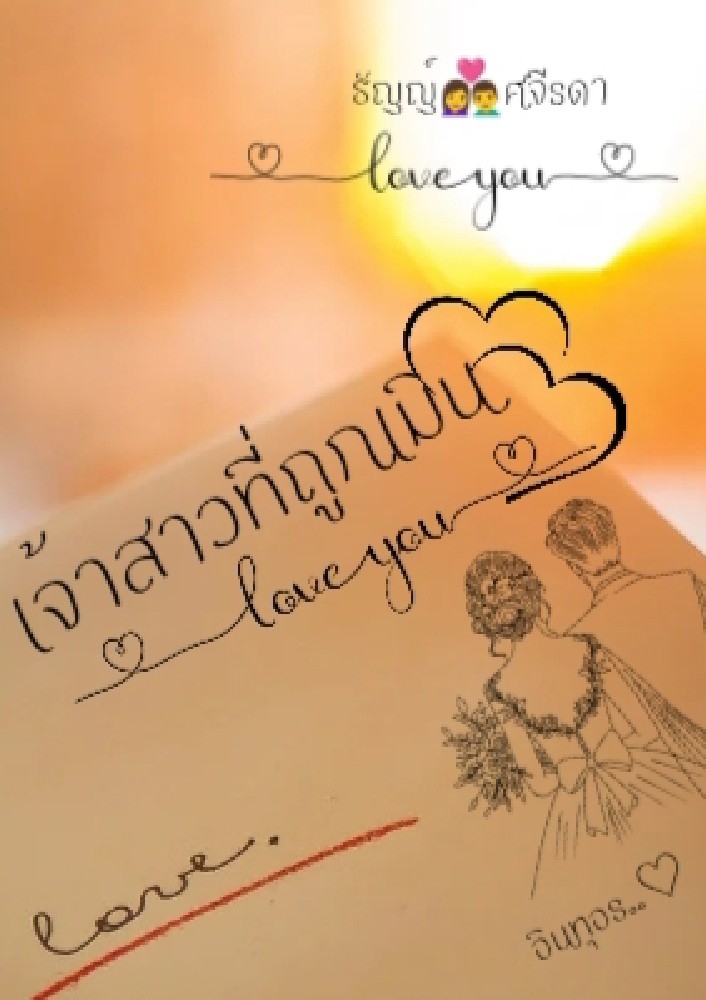 ธัญญ์👩‍❤️‍👨ศจีรดา
love you
เจ้าสาวที่ถูกเมิน
love you
love.
อินทุอร..♡